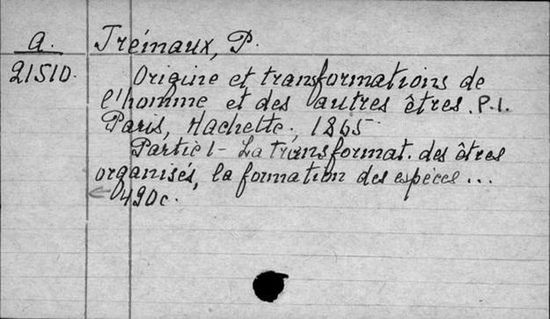 A. Trémaux, P.
21510. Origine et transformations de
l'homme et des autres êtres. P.1.
Paris, Hachette, 1865.
Partie 1 - La transformat. des êtres
organisés, la formation des espèces...
490c.